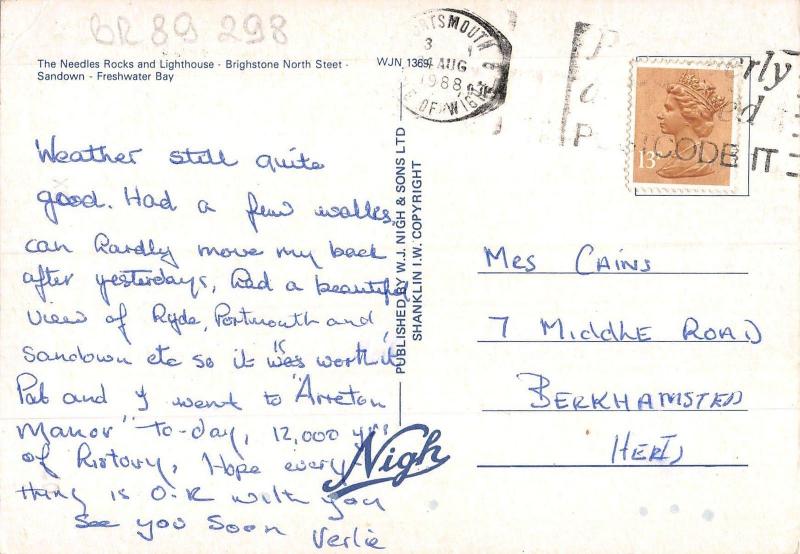 BR 89 298
The Needles Rocks and Lighthouse - Brighstone North Steet -
Sandown - Freshwater Bay
WJN 1369
PORTSMOUTH &
AUG
1988
E OF WIGHT
P rly
a ed
POSTCODE IT
13
Weather still quite
good. Had a few walks,
can hardly move my back
after yesterdays, had a beautiful
view of Ryde, Portmouth and
Sandown etc so it was worth it
Pat and I went to "Arreton
Manor" to-day, 12,000 yrs
of history, Hope every-
thing is O.K with you
See you soon
Verlie
PUBLISHED BY W.J. NIGH & SONS LTD
SHANKLIN I.W. COPYRIGHT
Nigh
Mrs Cains
7 Middle Road
Berkhamsted
Herts